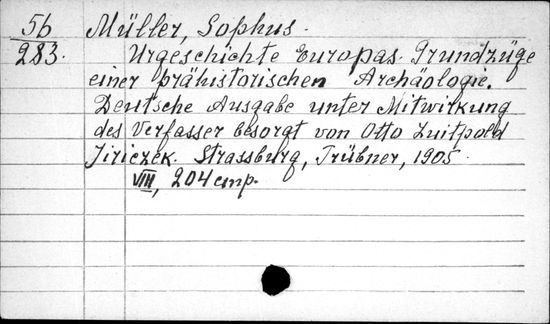 56 Müller, Sophus.
283. Urgeschichte Europas. Grundzüge
einer prähistorischen Archäologie.
Deutsche Ausgabe unter Mitwirkung
des Verfasser besorgt von Otto Luitpold
Jiriczek. Strassburg, Trübner, 1905.
VIII, 204 стр.